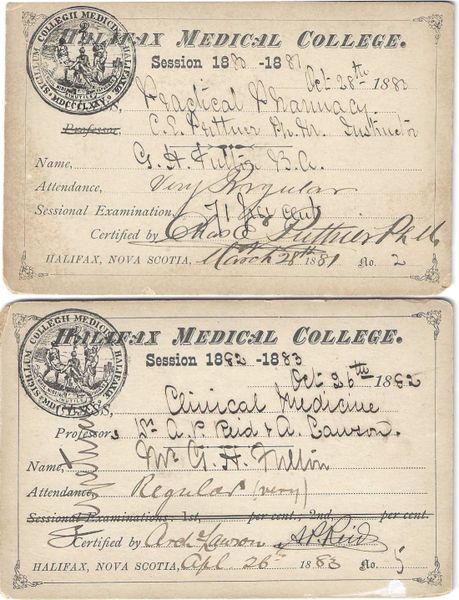 HALIFAX MEDICAL COLLEGE.
Session 1880 -1881
Oct 28th 1880
Practical Pharmacy
Professor C. E. Puttner Ph. M. Instructor
Name, G. H. Fullin B.A.
Attendance, Very Regular
Sessional Examination, 71 per cent
Certified by Puttner Ph M
HALIFAX, NOVA SCOTIA, March 28th 1881 No. 2
HALIFAX MEDICAL COLLEGE.
Session 1882 -1883
Oct 26th 1882
Clinical Medicine
Professors Dr. A. P. Reid & A. Lawson.
Name, Mr G. H. Fullin
Attendance, Regular (very)
Sessional Examinations: 1st, per cent. 2nd, per cent.
Certified by Arch Lawson A P Reid
HALIFAX, NOVA SCOTIA, Apl 26th 1883 No. 5